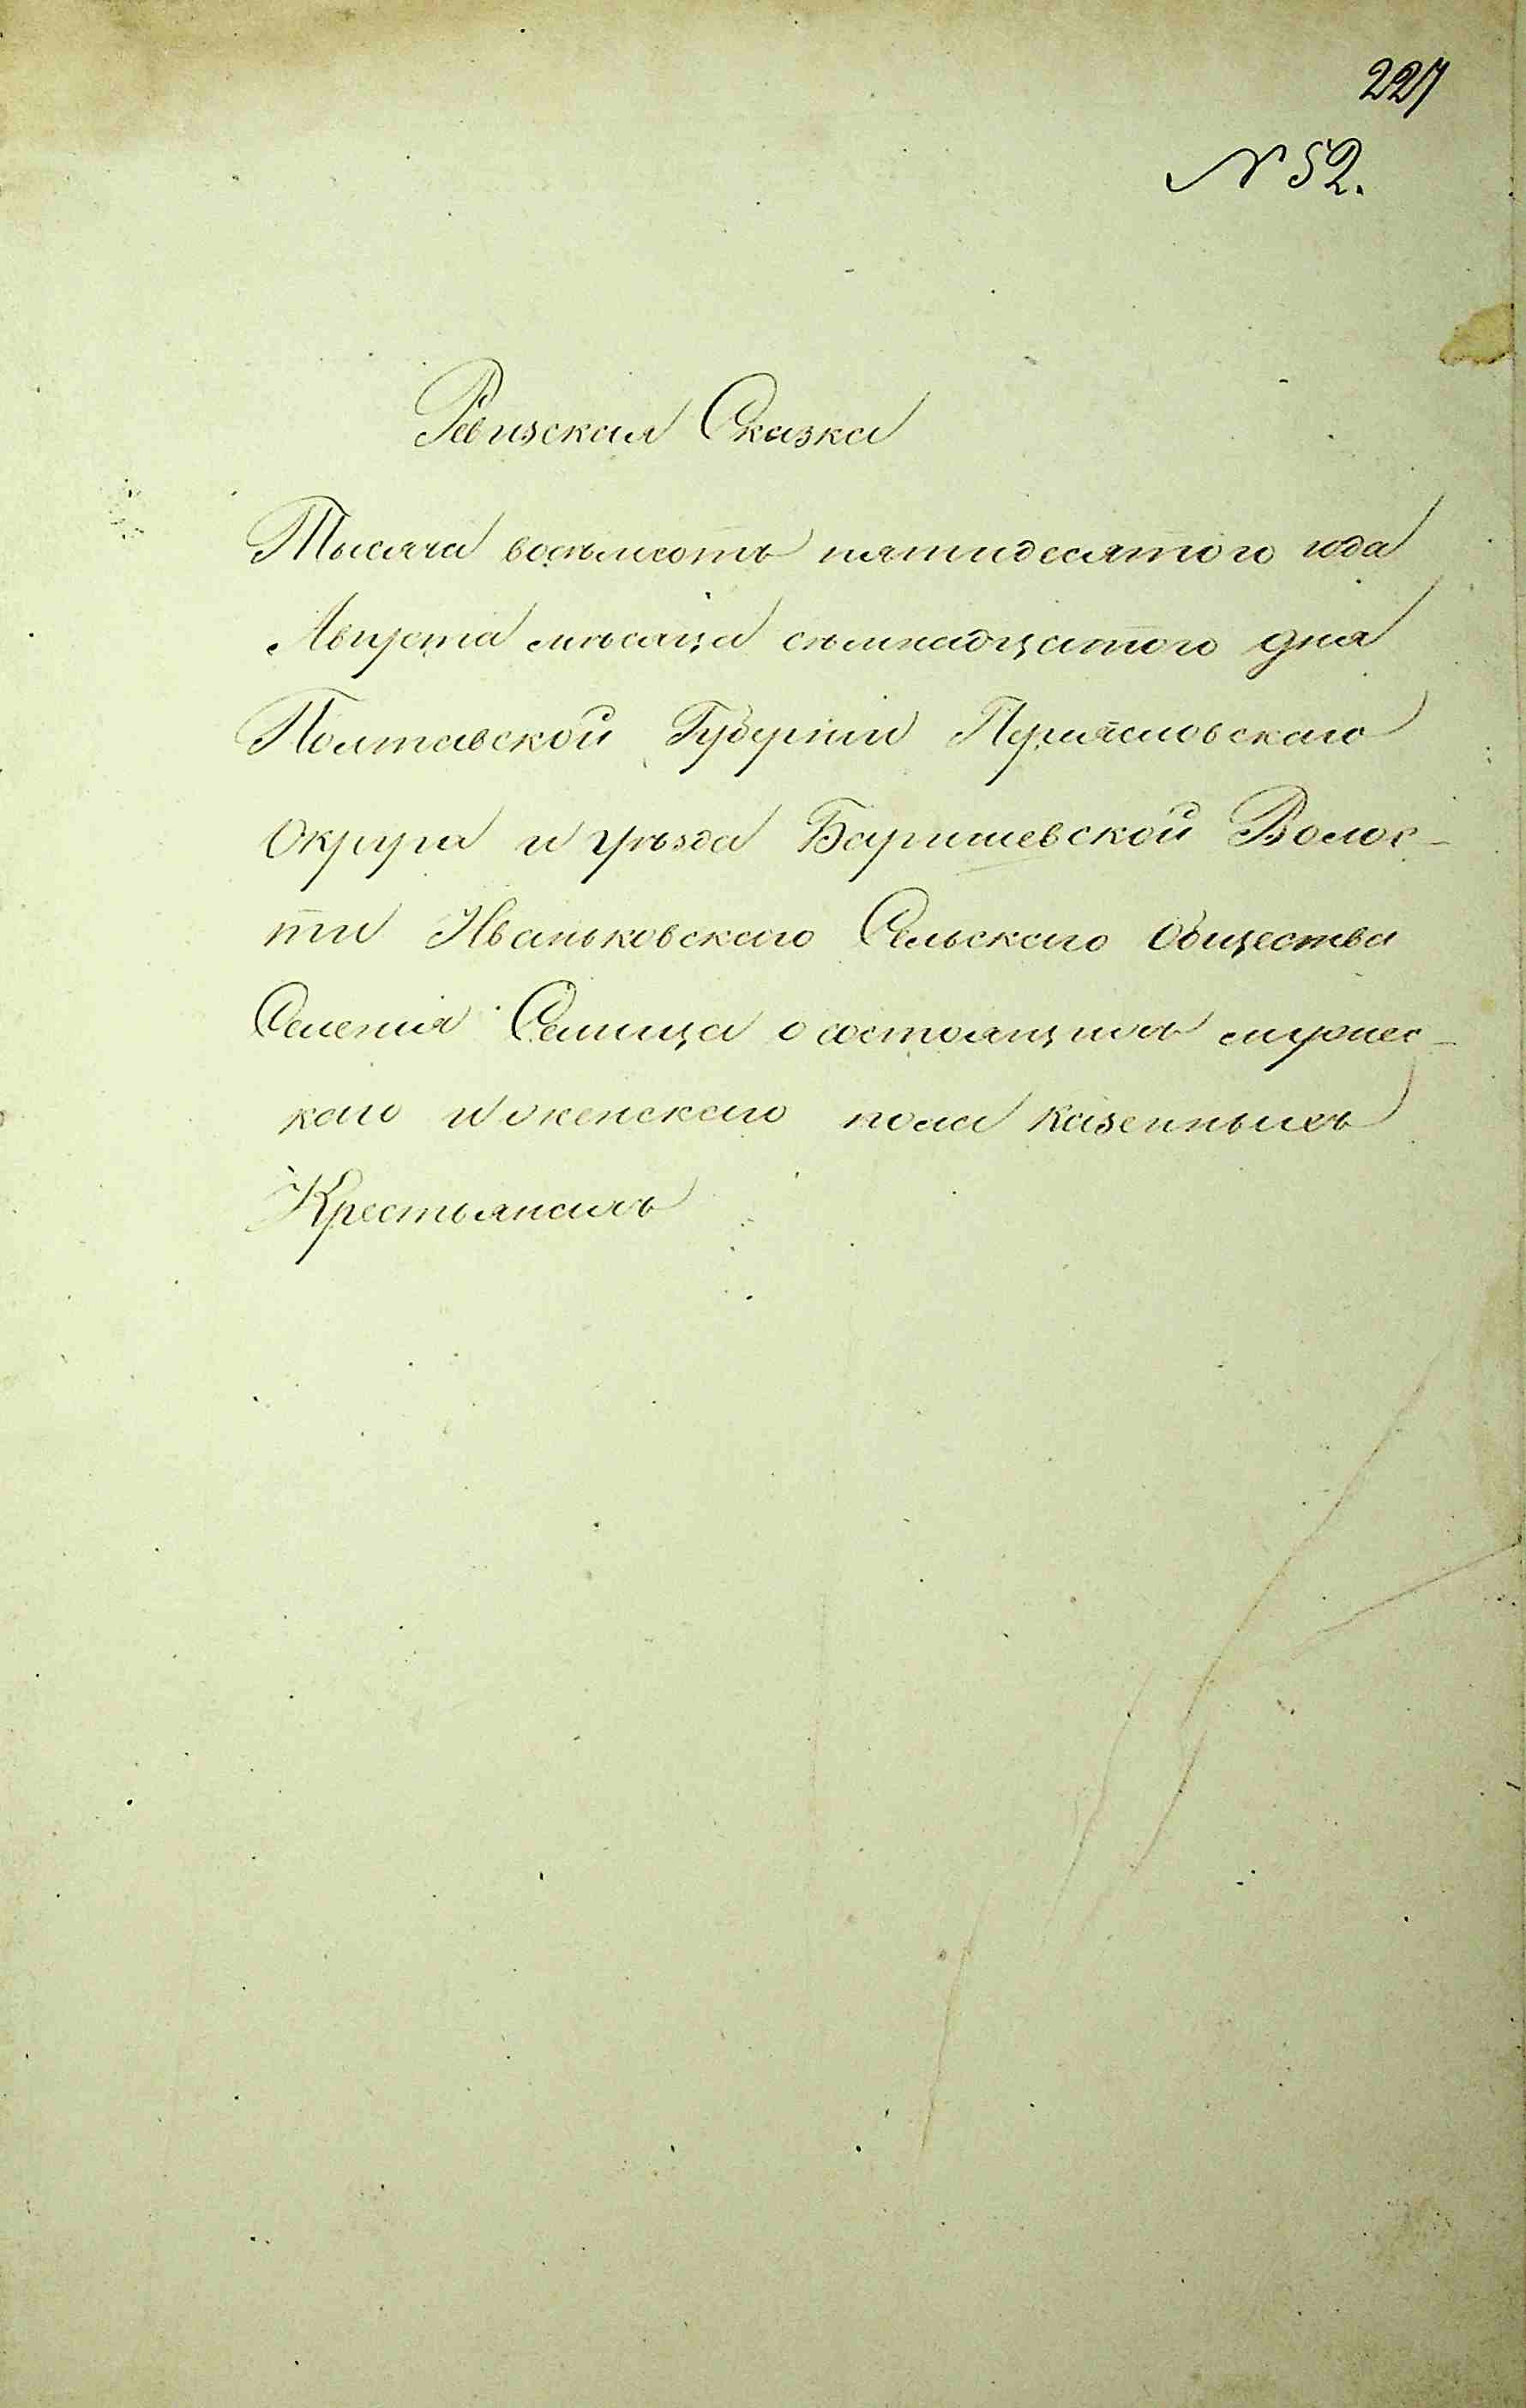 227
№ 52.
Ревизская Сказка
Тысяча восемьсотъ пятидесятого года
Августа мѣсяца семнадцатого дня
Полтавской Губерніи Переяславскаго
Округа и уѣзда Баришевской Волос-
ти Иваньковскаго Сельскаго Общества
Селенія Селища о состоящихъ мужес-
каго и женскаго пола казенныхъ
Крестьянахъ